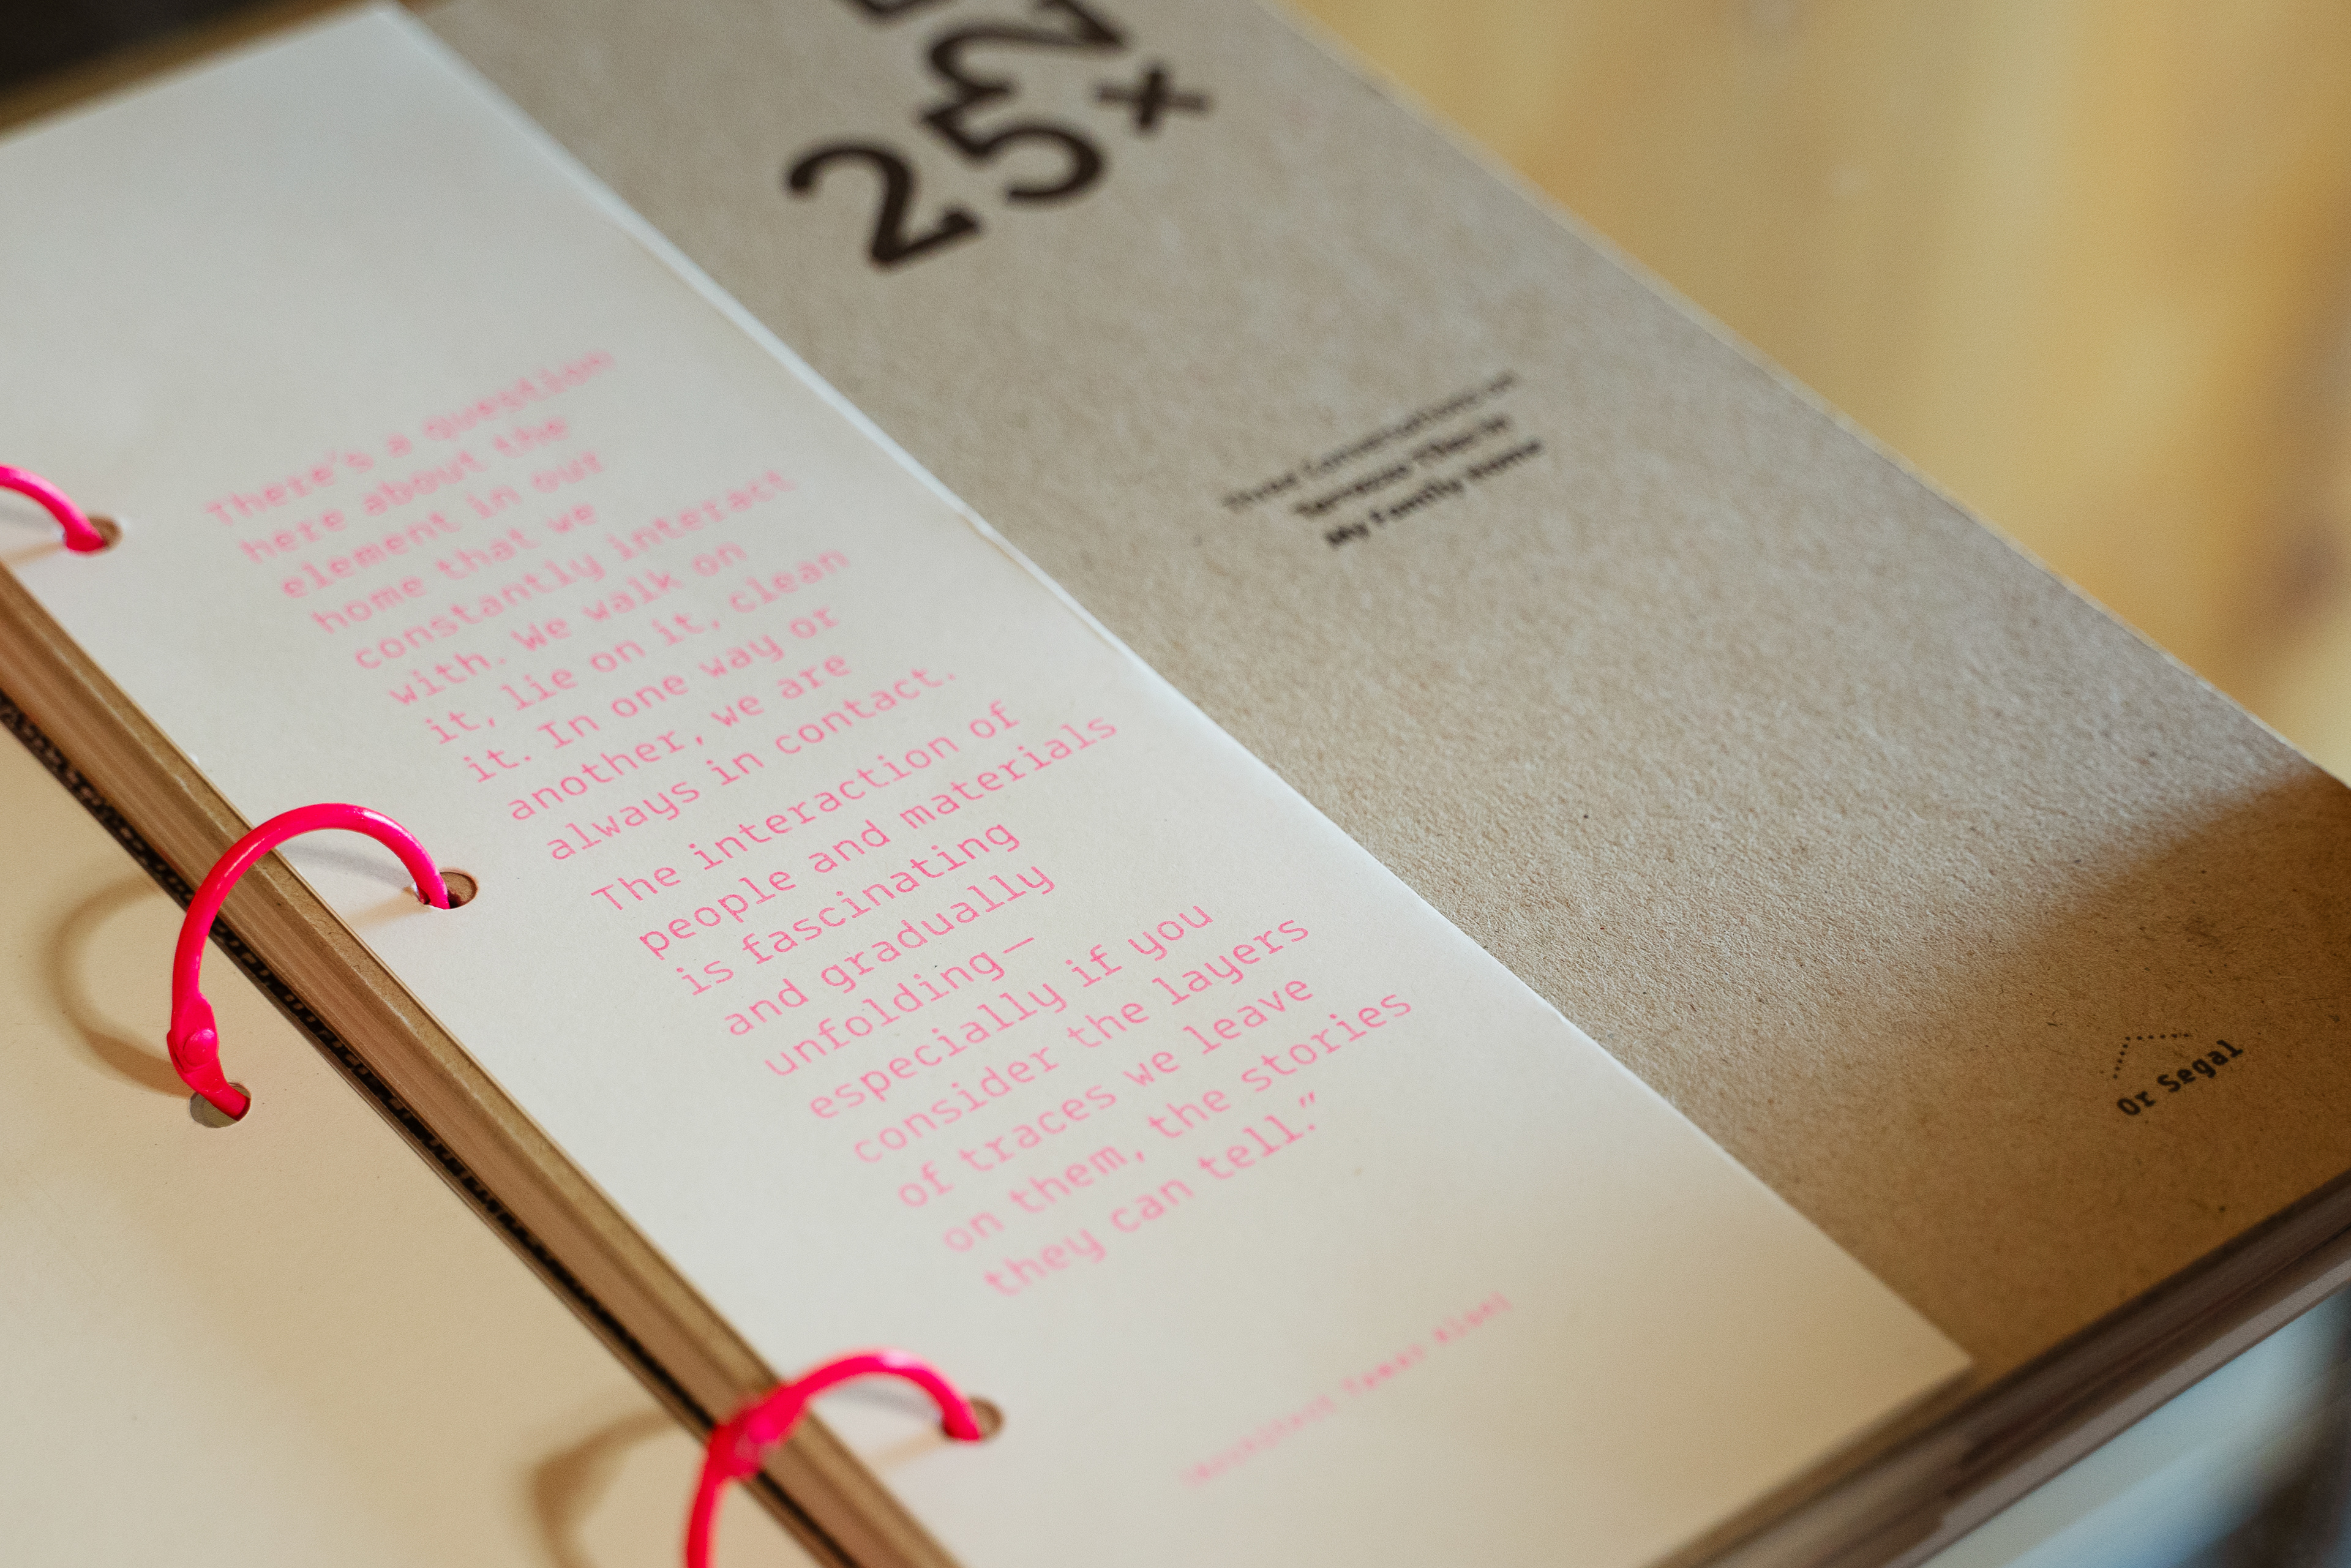 25
x
Terrazzo Tiles in
My Family Home
Or Segal
There's a question
here about the
element in our
home that we
constantly interact
with. We walk on
it, lie on it, clean
it. In one way or
another, we are
always in contact.
The interaction of
people and materials
is fascinating
and gradually
unfolding—
especially if you
consider the layers
of traces we leave
on them, the stories
they can tell.”